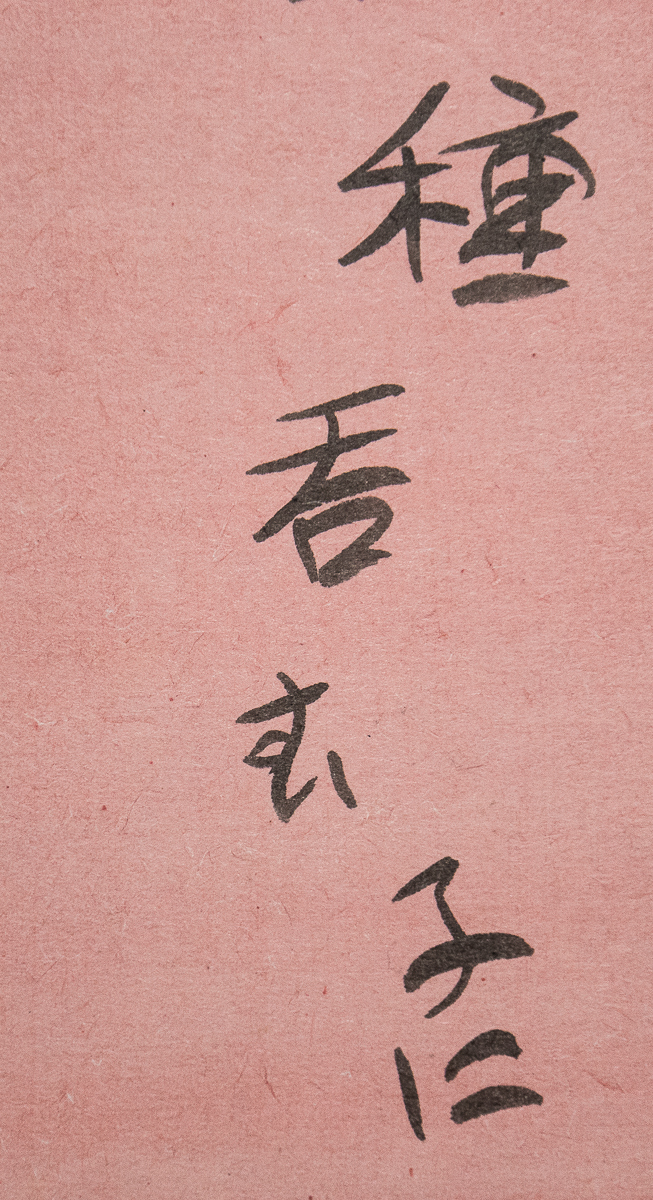 種呑む子に